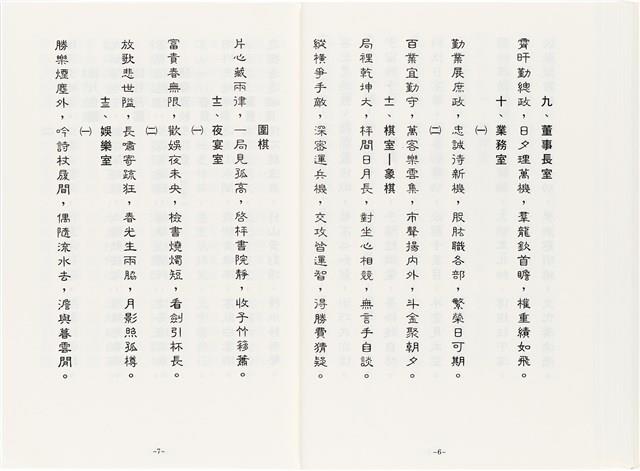 九、董事長室
霄旰勤總政，日夕理萬機，羣龍欽首瞻，權重績如飛。
十、業務室
㈠
勤業展庶政，忠誠待新機，股肱職各部，繁榮日可期。
㈡
百業宜勤守，萬客樂雲集，市聲揚內外，斗金聚朝夕。
十一、棋室—象棋
局裡乾坤大，枰間日月長，對坐心相競，無言手自談。
縱橫爭手敵，深密運兵機，交攻皆運智，得勝費猜疑。
-6-
圍棋
片心藏兩律，一局見孤高，啓枰書院靜，收子竹蓊蕭。
十二、夜宴室
㈠
富貴春無限，歡娛夜未央，檢書燒燭短，看劍引杯長。
㈡
放歌悲世隘，長嘯寄疏狂，春光生兩脇，月影照孤樽。
十三、娛樂室
㈠
勝樂煙塵外，吟詩杖履間，偶隨流水去，澹與暮雲閒。
-7-